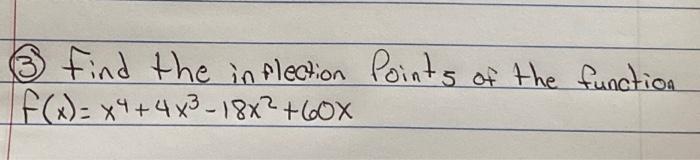 ③ find the inflection Points of the function
f(x)= x⁴+4x³-18x²+60x